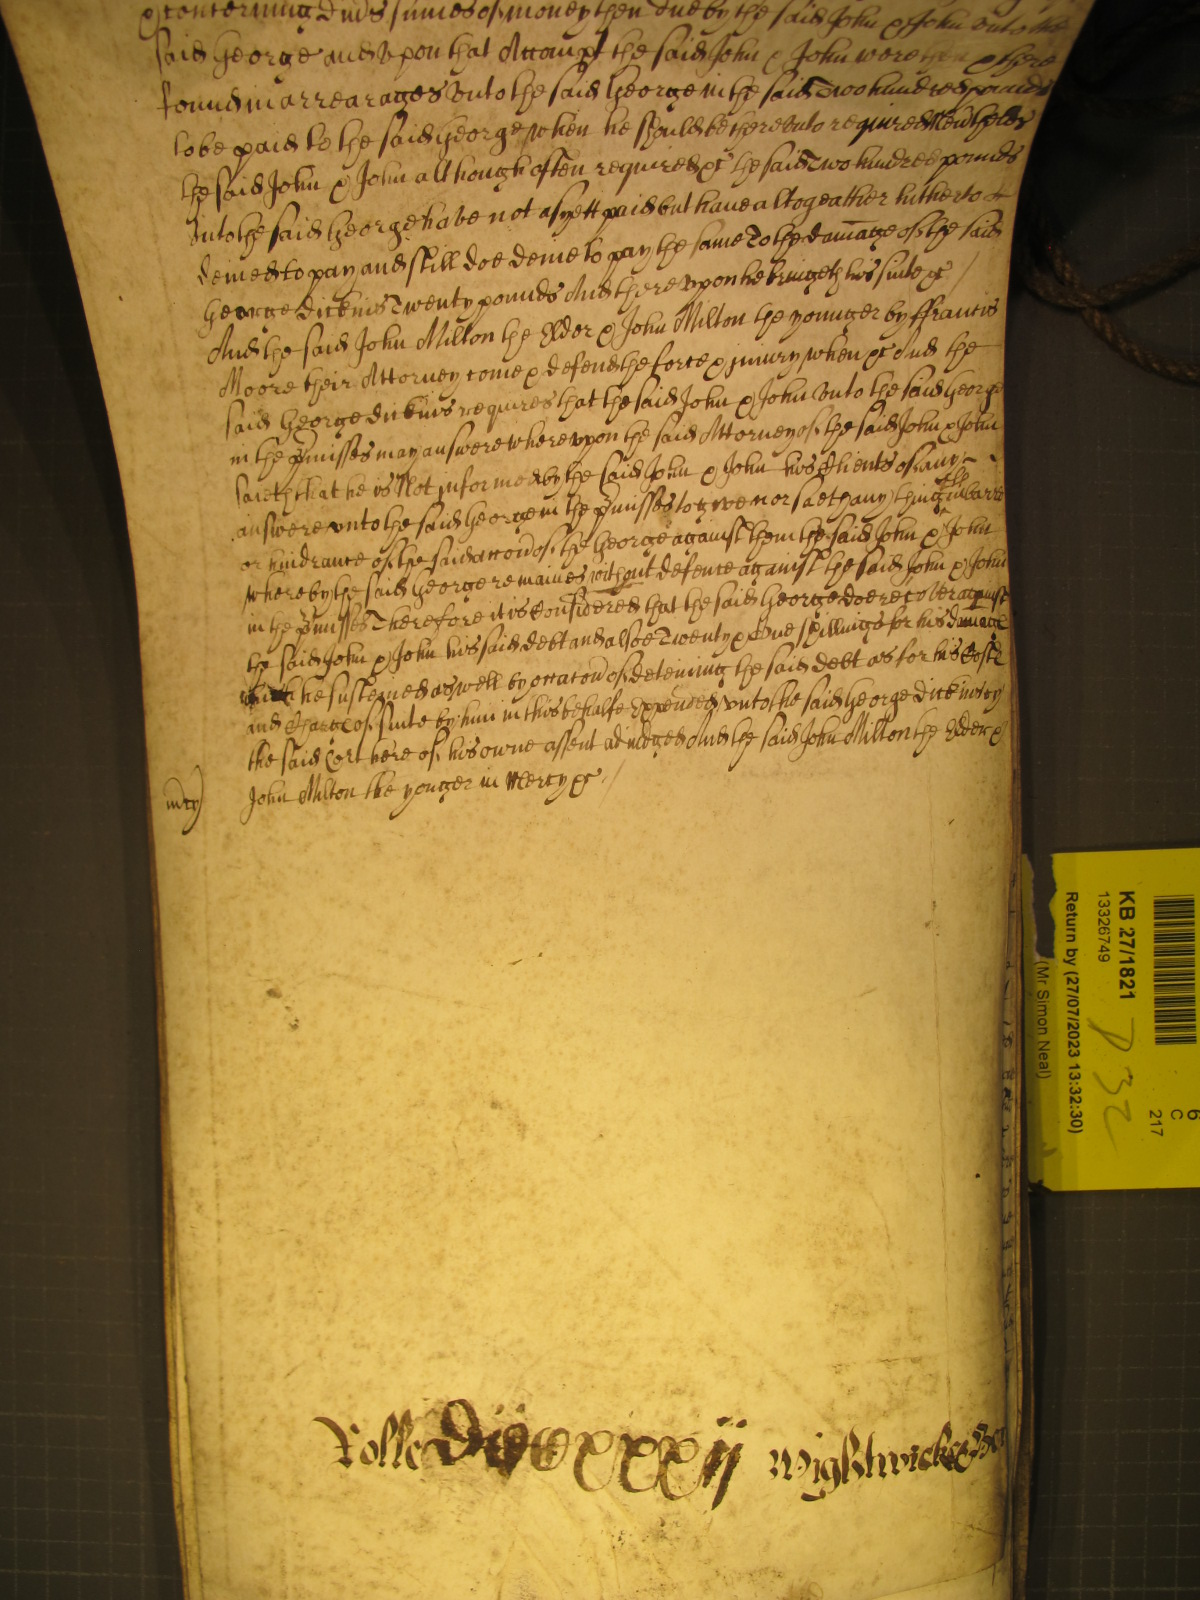 & concerning div's summes of money then due by the said John & John unto the
said George and upon that Accompt the said John & John were then & there
found in arrearages unto the said George in the said two hundred pounds
to be paid to the said George when he should be thereunto required Neu'theles
the said John & John although often required &c the said two hundred pounds
unto the said George have not as yett paid but have altogeather hitherto
denied to pay and still doe denie to pay the same To the damage of the said
George dickins Twenty pounds And thereupon he bringeth his suite &c /
And the said John Milton the Elder & John Milton the younger by ffrancis
Moore their Attorney come & defend the force & injury when &c And the
said George dickins requires that the said John & John unto the said George
in the p'misses may answere whereupon the said Attorney of the said John & John
saieth that he is Not informed by the said John & John his Clients of any
answere unto the said George in the p'misses to give nor saeth any thing in barre
or hindrance of the said accon of the George against them the said John & John
whereby the said George remaines without defence against the said John & John
in the p'misses Therefore it is Considered that the said George doe recover against
the said John & John his said debt and alsoe Twenty & One shillings for his damage
which he susteined as well by occacon of deteining the said debt as for his Costs
and Charge of suite by him in this behalfe expended unto the said George dickins by
the said Cort here of his owne assent adiudged And the said John Milton the Elder &
John Milton the yonger in Mercy &c /
mcy)
Rolle xxxij Wightwicke
KB 27/1821
13326749
Return by (27/07/2023 13:32:30)
(Mr Simon Neal)
D 32
6
C
217